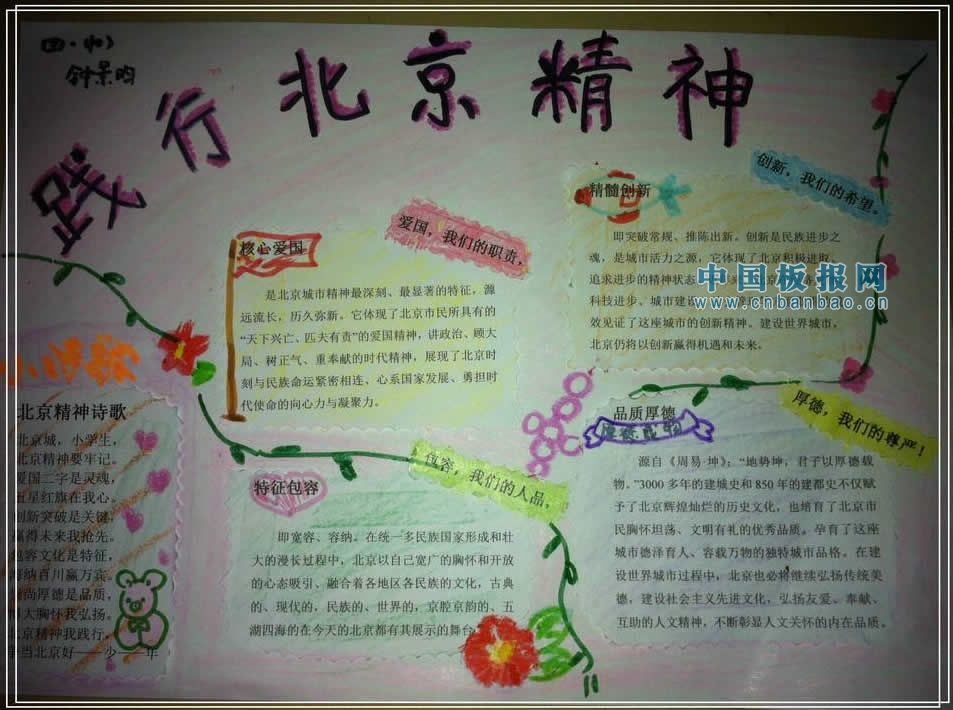 四·
钟景昀
践行北京精神
核心爱国
爱国，我们的职责，
是北京城市精神最深刻、最显著的特征，源
远流长，历久弥新。它体现了北京市民所具有的
“天下兴亡、匹夫有责”的爱国精神，讲政治、顾大
局、树正气、重奉献的时代精神，展现了北京时
刻与民族命运紧密相连、心系国家发展、勇担时
代使命的向心力与凝聚力。
精髓创新
创新，我们的希望。
即突破常规、推陈出新。创新是民族进步之
魂，是城市活力之源，它体现了北京积极进取、
追求进步的精神状态
科技进步、城市建
效见证了这座城市的创新精神。建设世界城市，
北京仍将以创新赢得机遇和未来。
中国板报网
www.cnbanbao.cn
小诗歌
北京精神诗歌
北京城，小学生，
北京精神要牢记。
爱国二字是灵魂，
五星红旗在我心。
创新突破是关键，
赢得未来我抢先。
包容文化是特征，
海纳百川赢万宾。
尚厚德是品质，
大胸怀我弘扬。
北京精神我践行，
争当北京好——少——年
特征包容
包容，我们的人品，
即宽容、容纳。在统一多民族国家形成和壮
大的漫长过程中，北京以自己宽广的胸怀和开放
的心态吸引、融合着各地区各民族的文化，古典
的、现代的，民族的、世界的，京腔京韵的、五
湖四海的在今天的北京都有其展示的舞台
品质厚德
厚德，我们的尊严！
源自《周易·坤》：“地势坤，君子以厚德载
物。”3000 多年的建城史和 850 年的建都史不仅赋
予了北京辉煌灿烂的历史文化，也培育了北京市
民胸怀坦荡、文明有礼的优秀品质。孕育了这座
城市德泽育人、容载万物的独特城市品格。在建
设世界城市过程中，北京也必将继续弘扬传统美
德，建设社会主义先进文化，弘扬友爱、奉献、
互助的人文精神，不断彰显人文关怀的内在品质。